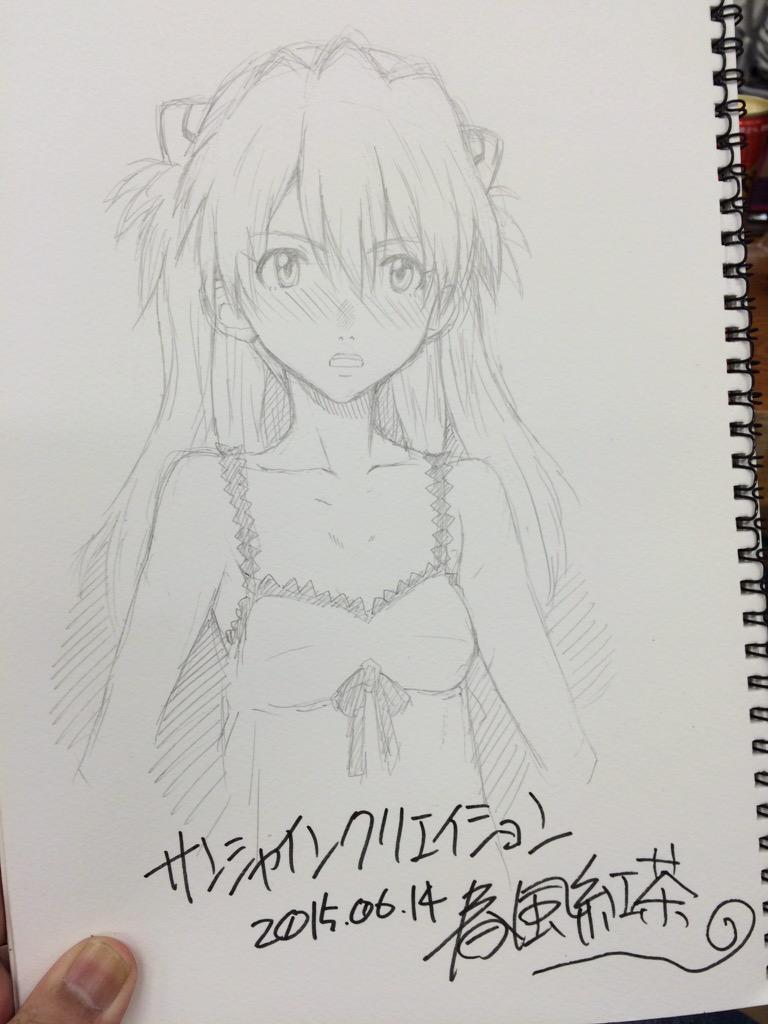 サンシャインクリエイション
2015.06.14
春風紅茶